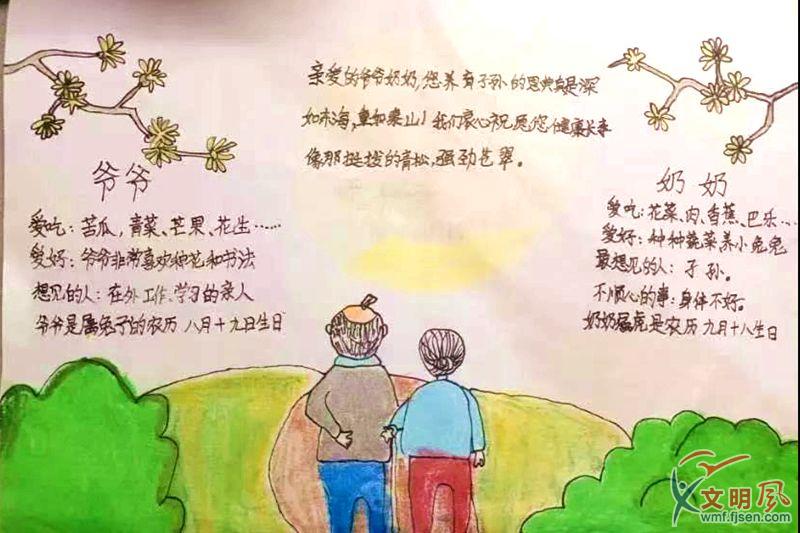 亲爱的爷爷奶奶,您养育子孙的恩典真是深
如木海,重如泰山!我们衷心祝愿您健康长寿
像那挺拔的青松,强劲苍翠。
爷爷
爱吃:苦瓜,青菜、芒果、花生……
爱好:爷爷非常喜欢种花和书法
想见的人:在外工作、学习的亲人
爷爷是属兔子的农历 八月十九日生日
奶奶
爱吃:花菜、肉、香蕉、巴乐…
爱好:种种蔬菜养小兔兔
最想见的人:子孙。
不顺心的事:身体不好。
奶奶属虎是农历 九月十八生日
文明风
wmf.fjsen.com